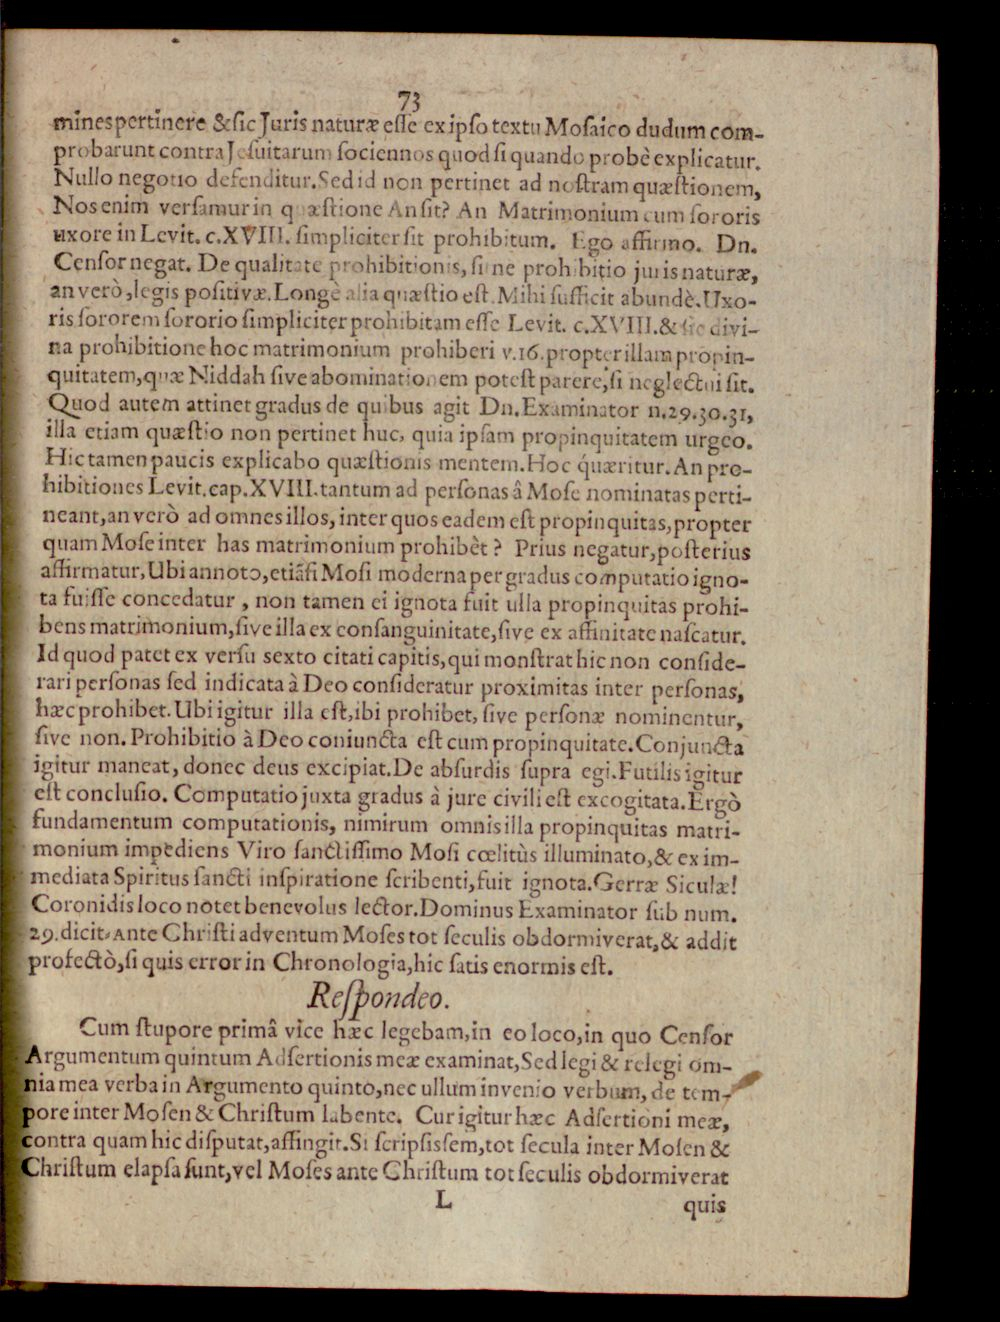 73
mines pertinere & sic Juris naturæ esse ex ipso textu Mosaico dudum com-
probarunt contra Jesuitarum sociennos quod si quando probè explicatur.
Nullo negotio defenditur. Sed id non pertinet ad nostram quæstionem,
Nos enim versamur in quæstione An sit? An Matrimonium cum sororis
uxore in Levit. c. XVIII. simpliciter sit prohibitum. Ego affirmo. Dn.
Censor negat. De qualitate prohibitionis, sitne prohibitio juris naturæ,
an verò, legis positivæ. Longè alia quæstio est. Mihi sufficit abundè. Uxo-
ris sororem sororio simpliciter prohibitam esse Levit. c. XVIII. & sic divi-
na prohibitione hoc matrimonium prohiberi v. 16. propter illam propin-
quitatem, quæ Niddah sive abominationem potest parere, si neglectui sit.
Quod autem attinet gradus de quibus agit Dn. Examinator n. 29. 30. 31,
illa etiam quæstio non pertinet huc, quia ipsam propinquitatem urgeo.
Hic tamen paucis explicabo quæstionis mentem. Hoc quæritur. An pro-
hibitiones Levit. cap. XVIII. tantum ad personas â Mose nominatas perti-
neant, an verò ad omnes illos, inter quos eadem est propinquitas, propter
quam Mose inter has matrimonium prohibèt? Prius negatur, posterius
affirmatur, Ubi annoto, etiãsi Mosi moderna per gradus computatio igno-
ta fuisse concedatur, non tamen ei ignota fuit ulla propinquitas prohi-
bens matrimonium, sive illa ex consanguinitate, sive ex affinitate nascatur.
Id quod patet ex versu sexto citati capitis, qui monstrat hic non conside-
rari personas sed indicata à Deo consideratur proximitas inter personas,
hæc prohibet. Ubi igitur illa est, ibi prohibet, sive personæ nominentur,
sive non. Prohibitio à Deo coniuncta est cum propinquitate. Conjuncta
igitur maneat, donec deus excipiat. De absurdis supra egi. Futilis igitur
est conclusio. Computatio juxta gradus à jure civili est excogitata. Ergò
fundamentum computationis, nimirum omnis illa propinquitas matri-
monium impediens Viro sanctissimo Mosi cœlitùs illuminato, & ex im-
mediata Spiritus sancti inspiratione scribenti, fuit ignota. Gerræ Siculæ!
Coronidis loco notet benevolus lector. Dominus Examinator sub num.
29. dicit, Ante Christi adventum Moses tot seculis obdormiverat, & addit
profectò, si quis error in Chronologia, hic satis enormis est.
Respondeo.
Cum stupore primâ vice hæc legebam, in eo loco, in quo Censor
Argumentum quintum Adsertionis meæ examinat, Sed legi & relegi om-
nia mea verba in Argumento quinto, nec ullum invenio verbum, de tem-
pore inter Mosen & Christum labente. Cur igitur hæc Adsertioni meæ,
contra quam hic disputat, affingit. Si scripsissem, tot secula inter Mosen &
Christum elapsa sunt, vel Moses ante Christum tot seculis obdormiverat
L
quis